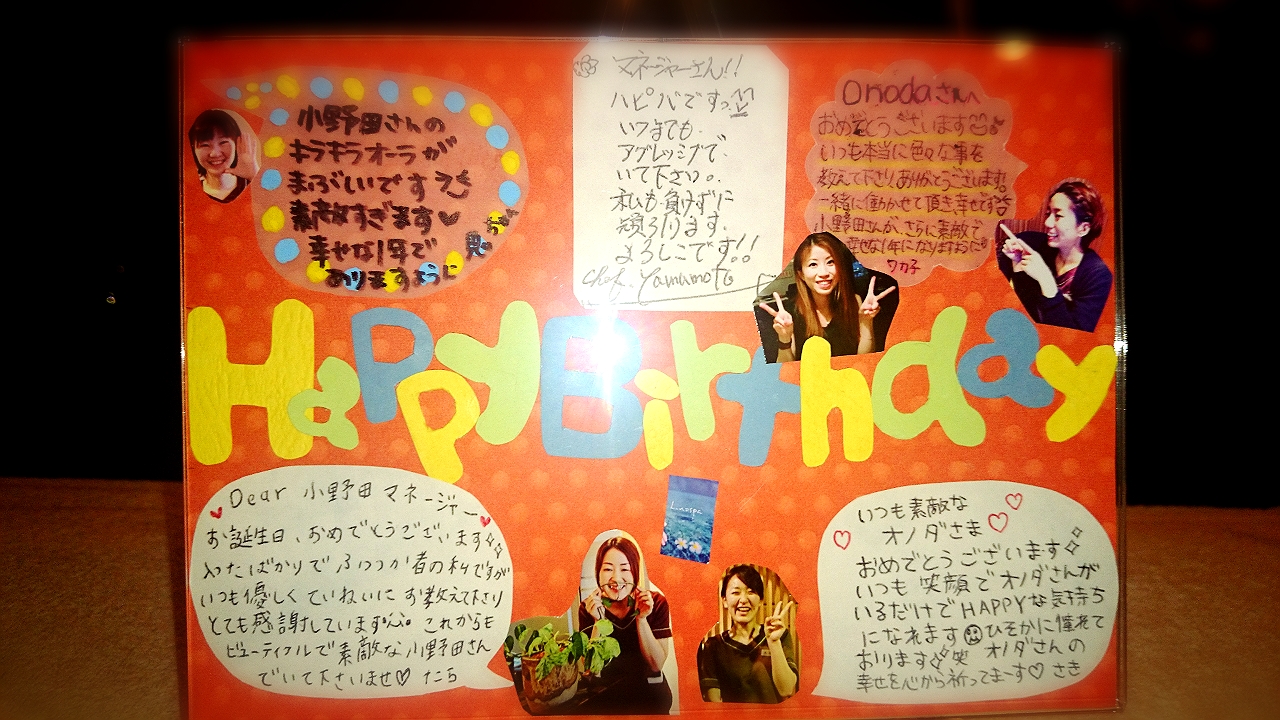 小野田さんの
キラキラオーラが
まぶしいです
素敵すぎます♡
幸せな1年で
ありますように
マネージャーさん!!
ハピバですっ
いつまでも
アグレッシブで
いて下さい。
私も負けずに
頑張ります。
よろしこです!!
chef. Yamamoto
Onodaさんへ
おめでとうございます
いつも本当に色々な事を
教えて下さり、ありがとうございます。
一緒に働かせて頂き幸せです
小野田さんが、さらに素敵で
幸せな1年になりますように
ワカ子
Happy Birthday
Dear 小野田 マネージャー
お誕生日、おめでとうございます
入ったばかりでふつつか者の私ですが
いつも優しくていねいにお教えて下さり
とても感謝しています これからも
ビューティフルで素敵な小野田さん
でいて下さいませ♡ たら
いつも素敵な
オノダさま♡
おめでとうございます
いつも笑顔でオノダさんが
いるだけでHAPPYな気持ち
になれます ひそかに憧れて
おります笑 オノダさんの
幸せを心から祈ってまーす♡ さき